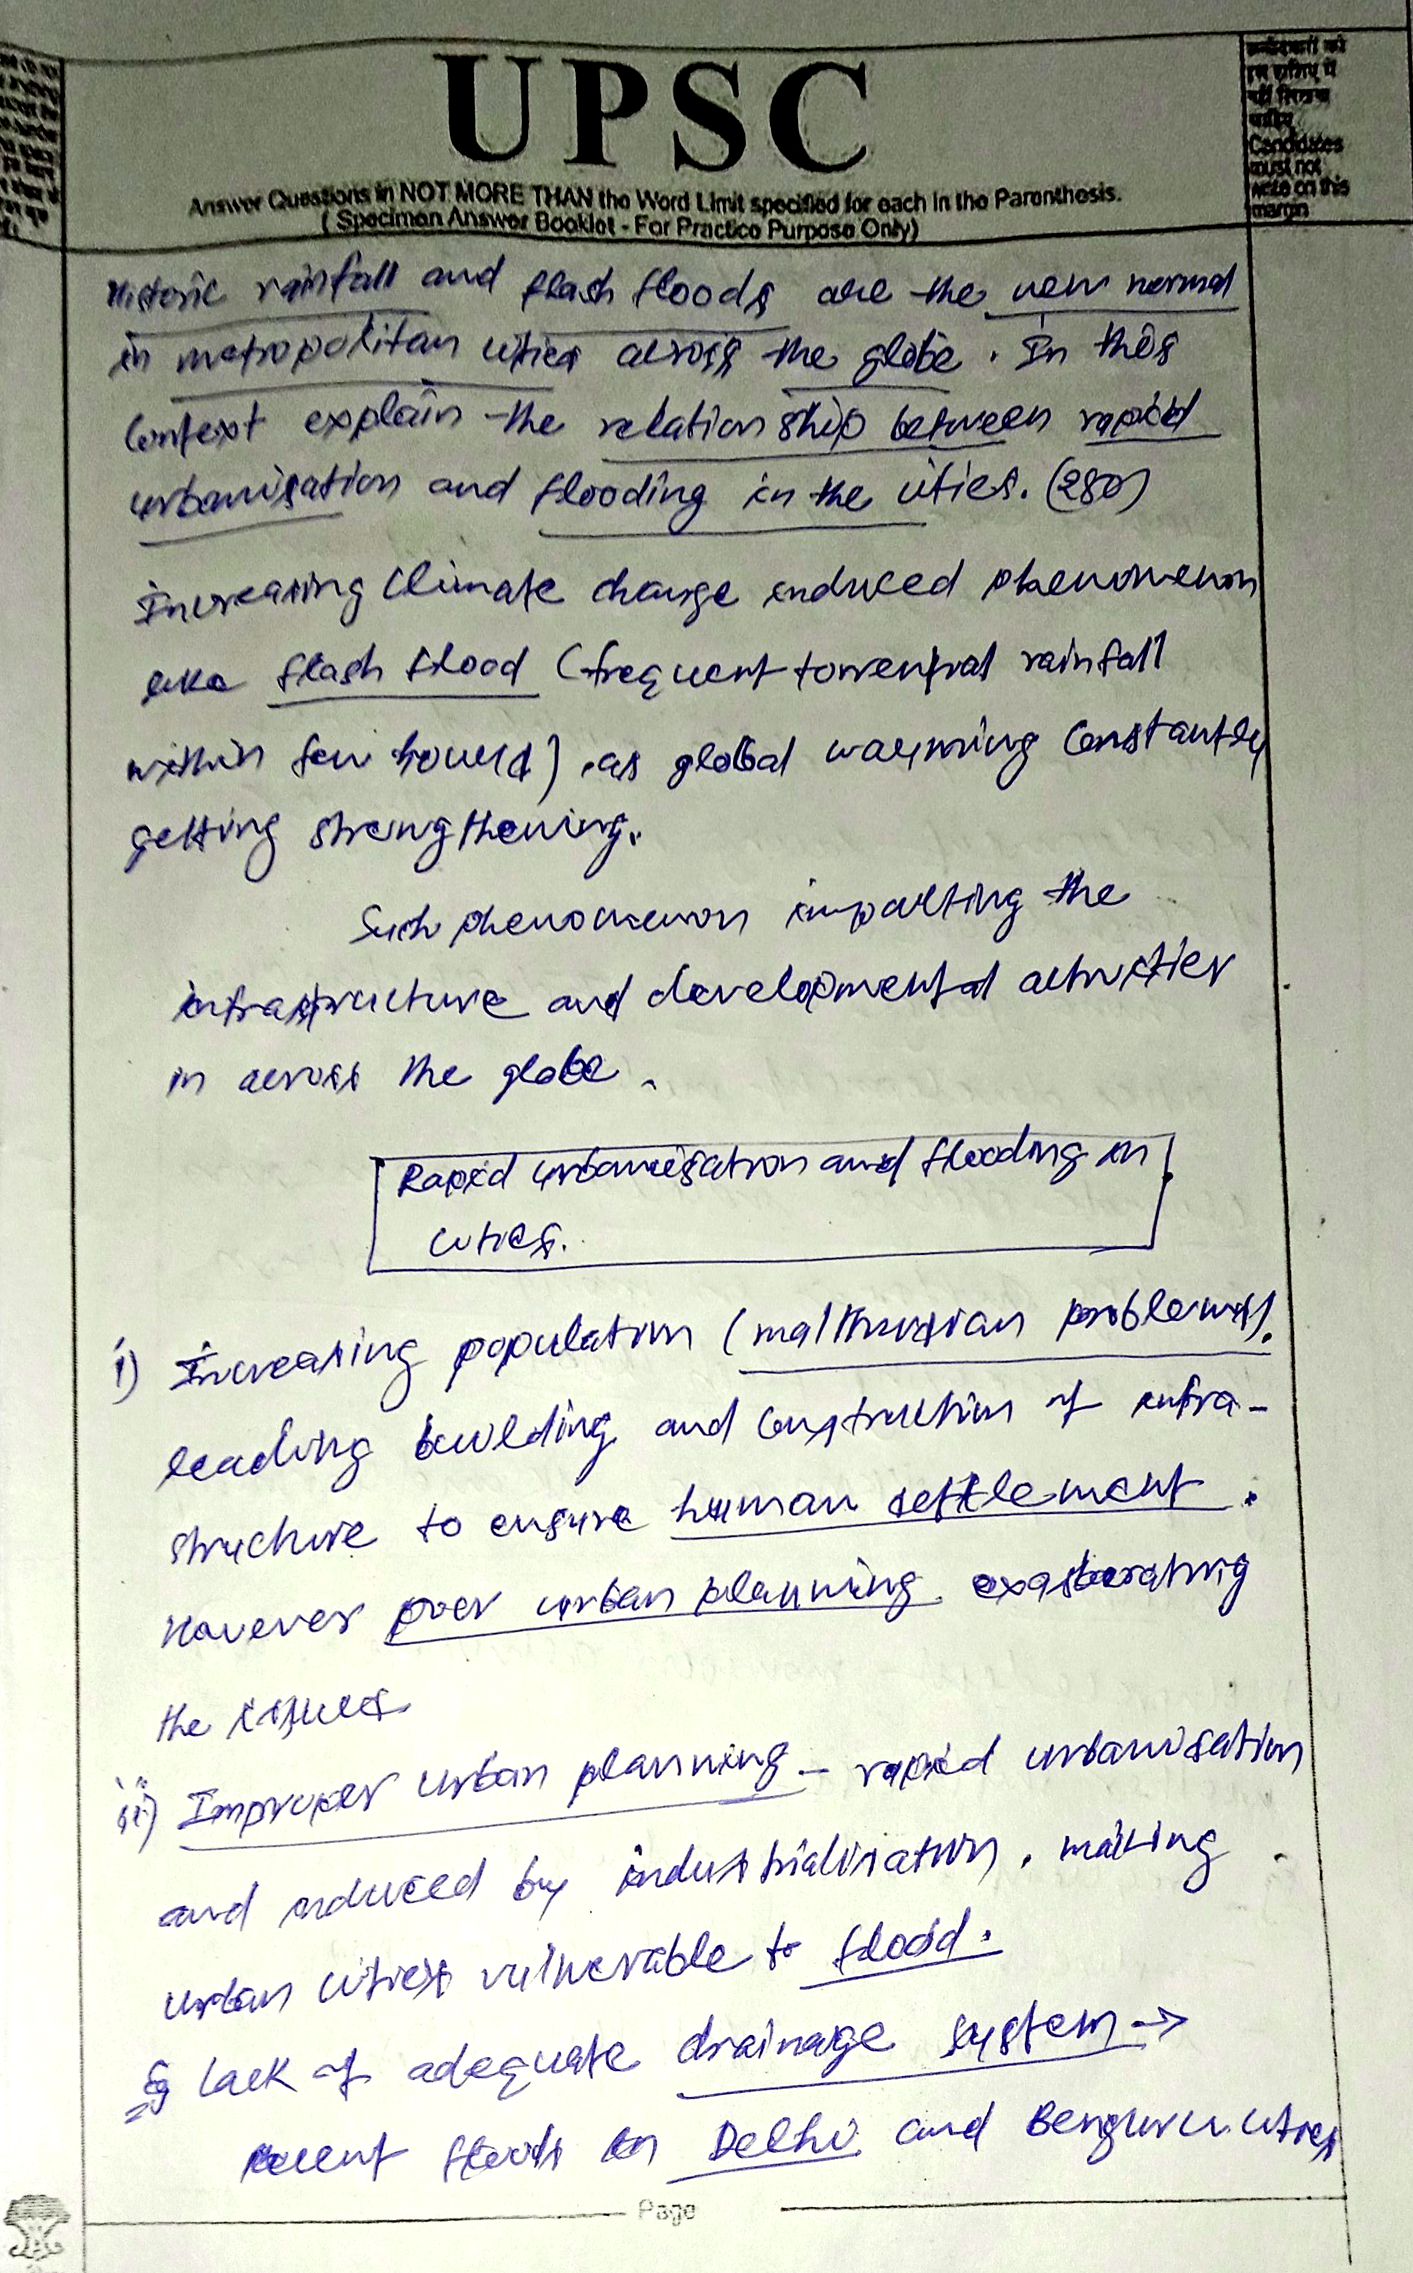 UPSC
Answer Questions in NOT MORE THAN the Word Limit specified for each in the Parenthesis.
( Specimen Answer Booklet - For Practice Purpose Only)
Candidates
must not
write on this
margin
Historic rainfall and flash floods are the new normal
in metropolitan cities across the globe. In this
context explain the relationship between rapid
urbanisation and flooding in the cities. (250)
Increasing Climate change induced phenomenon
like flash flood (frequent torrential rainfall
within few hours) as global warming constantly
getting strengthening.
Such phenomenon impacting the
infrastructure and developmental activities
in across the globe.
Rapid urbanisation and flooding in
cities.
i) Increasing population (malthusian problems).
leading building and construction of infra-
structure to ensure human settlement.
However poor urban planning exasberating
the issues
ii) Improper urban planning - rapid urbanisation
and induced by industrialisation, making
urban cities vulnerable to flood.
Eg Lack of adequate drainage system →
recent floods in Delhi and Benguru cities
Page